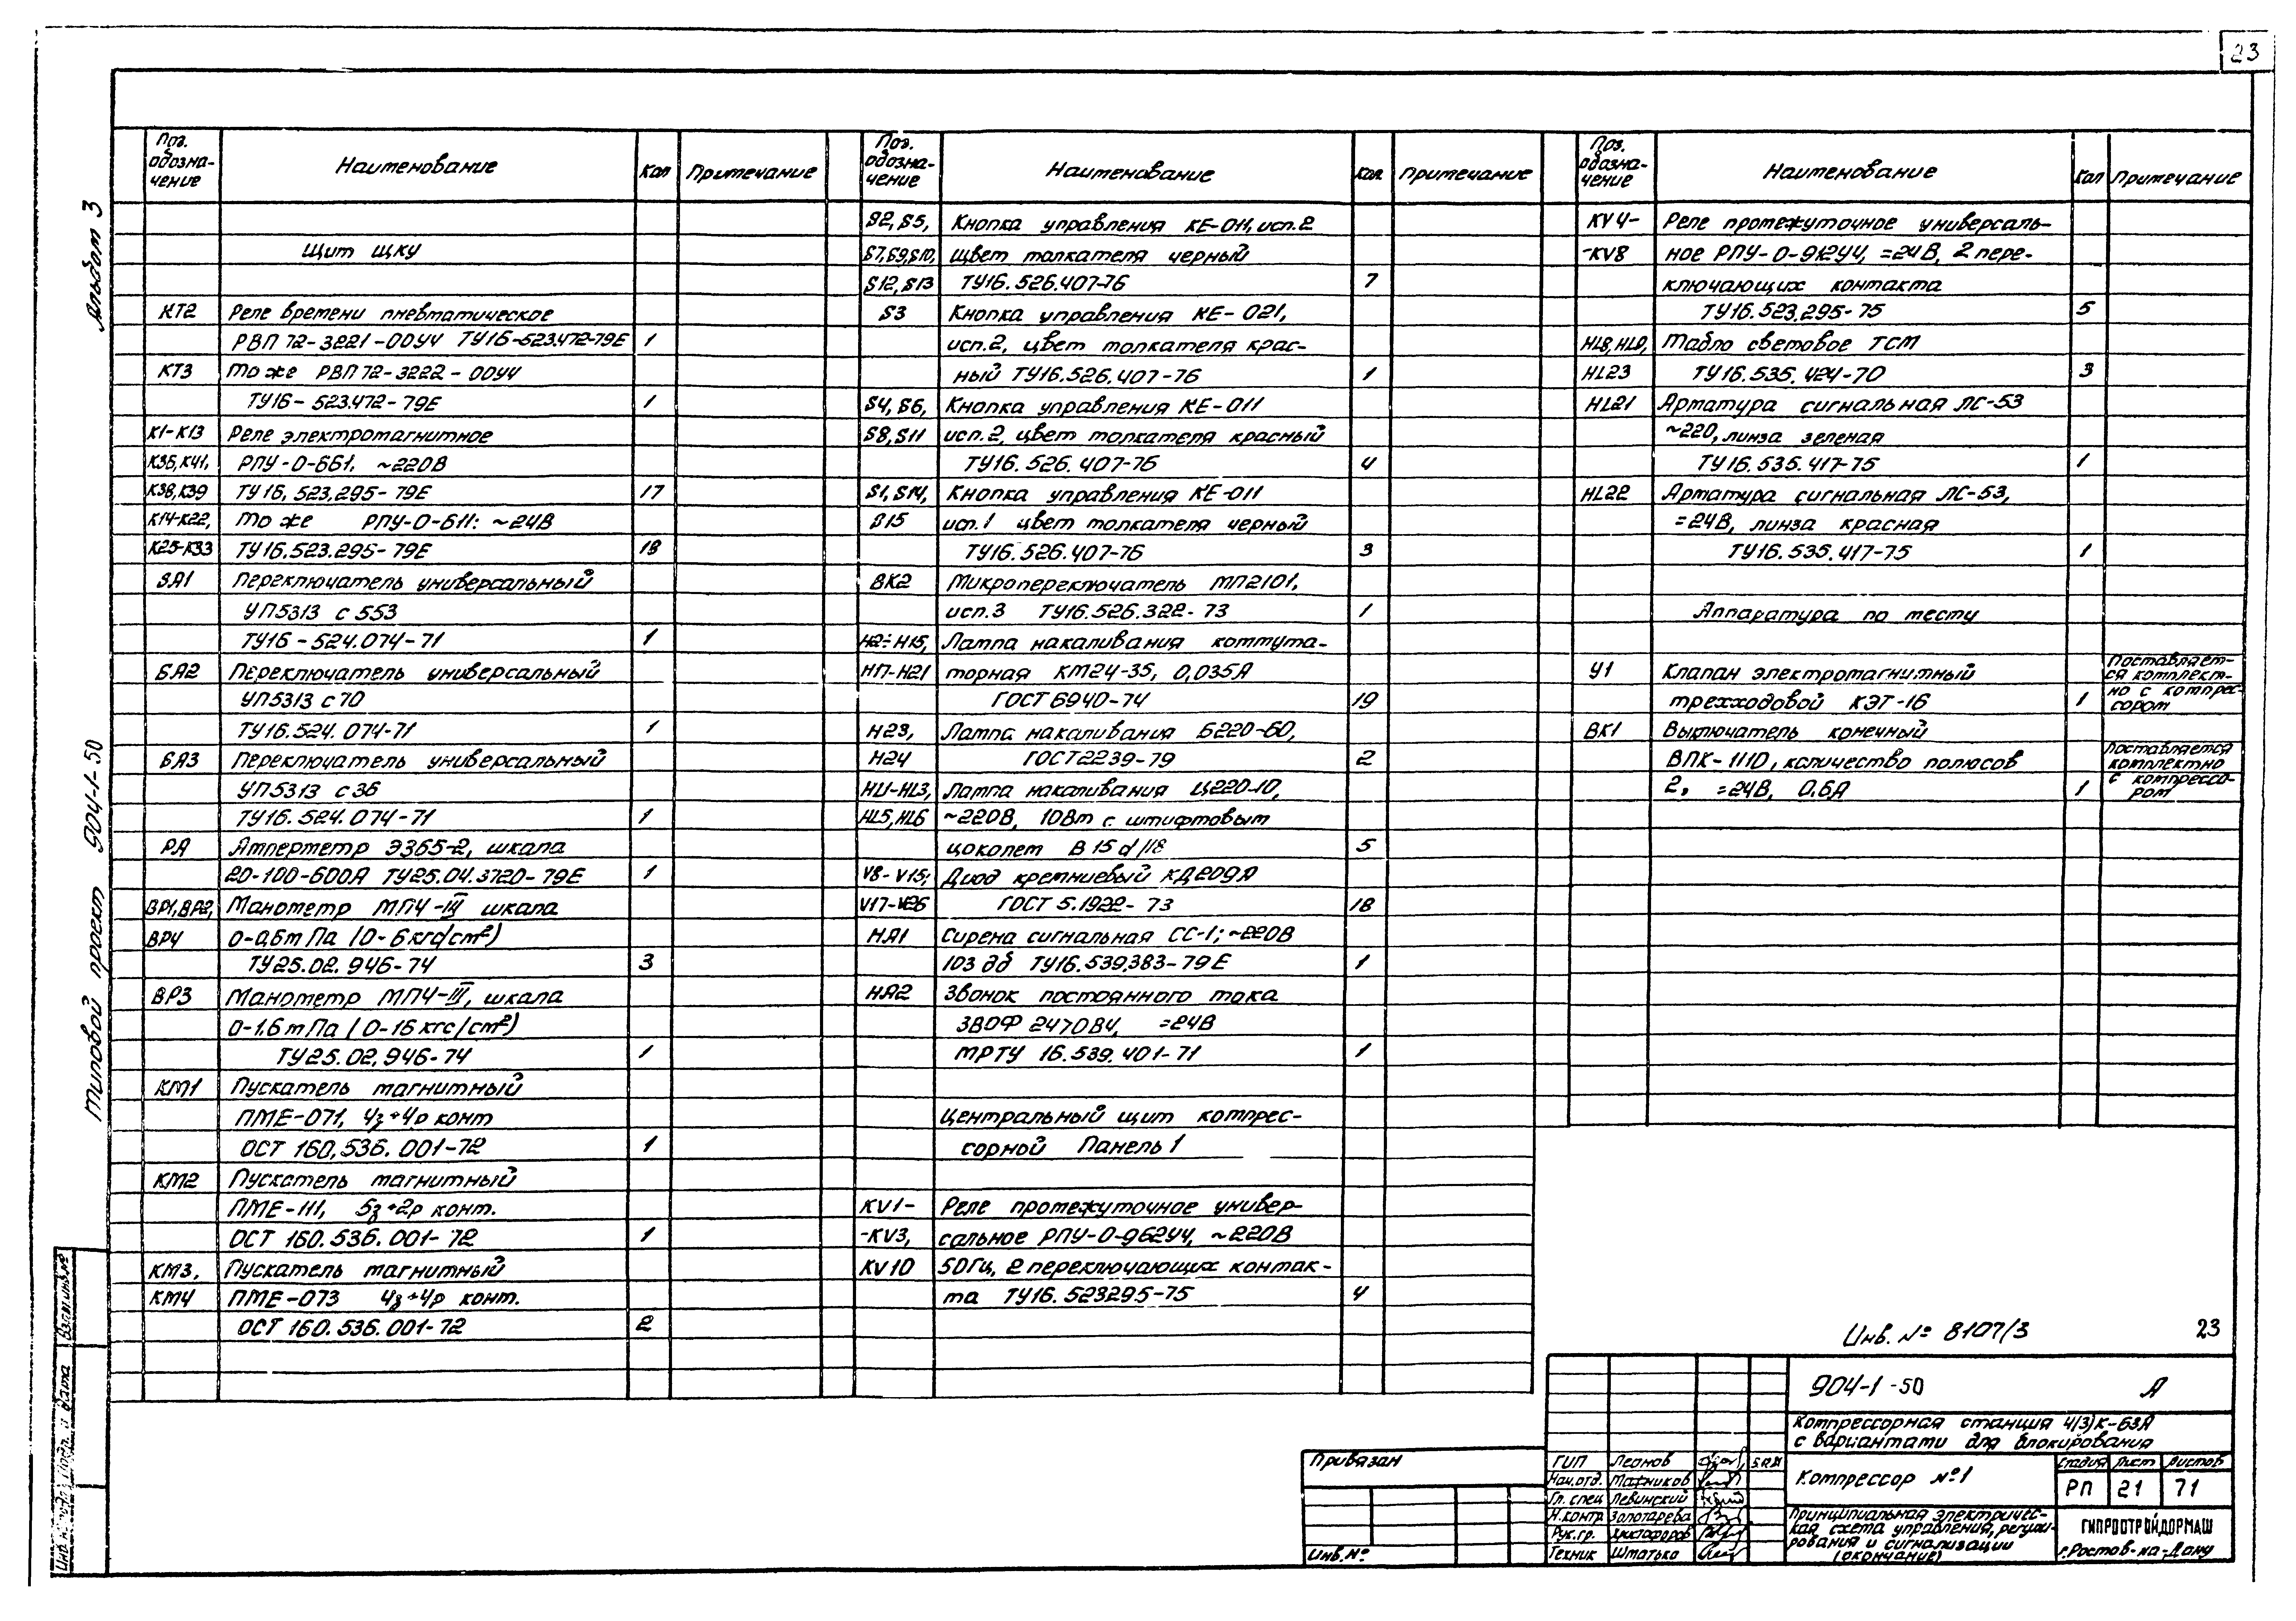 23
Альбом 3
Типовой проект 904-1-50
Поз. обозначение
Наименование
Кол
Примечание
Щит ЩКУ
КТ2 Реле времени пневматическое
РВП 72-3221-00У4 ТУ16-523.472-79Е 1
КТ3 То же РВП 72-3222-00У4
ТУ16-523.472-79Е 1
К1-К13 Реле электромагнитное
К36,К41, РПУ-0-661, ~220В
К38,К39 ТУ16.523.295-79Е 17
К14-К22, То же РПУ-0-611: ~24В
К25-К33 ТУ16.523.295-79Е 18
SA1 Переключатель универсальный
УП5313 с 553
ТУ16-524.074-71 1
SA2 Переключатель универсальный
УП5313 с 70
ТУ16.524.074-71 1
SA3 Переключатель универсальный
УП5313 с 36
ТУ16.524.074-71 1
РА Амперметр Э365-2, шкала
20-100-600А ТУ25.04.3720-79Е 1
ВР1,ВР2, Манометр МП4-III шкала
ВР4 0-0,6мПа (0-6кгс/см²)
ТУ25.02.946-74 3
ВР3 Манометр МП4-III, шкала
0-1.6мПа (0-16кгс/см²)
ТУ25.02.946-74 1
КМ1 Пускатель магнитный
ПМЕ-071, 4з+4р конт
ОСТ 160.536.001-72 1
КМ2 Пускатель магнитный
ПМЕ-111, 5з+2р конт.
ОСТ 160.536.001-72 1
КМ3, Пускатель магнитный
КМ4 ПМЕ-073 4з+4р конт.
ОСТ 160.536.001-72 2
Поз. обозначение
Наименование
Кол
Примечание
S2, S5, Кнопка управления КЕ-011, исп.2
S7,S9,S10, цвет толкателя черный
S12,S13 ТУ16.526.407-76 7
S3 Кнопка управления КЕ-021,
исп.2, цвет толкателя крас-
ный ТУ16.526.407-76 1
S4, S6, Кнопка управления КЕ-011
S8, S11 исп.2, цвет толкателя красный
ТУ16.526.407-76 4
S1, S14, Кнопка управления КЕ-011
S15 исп.1 цвет толкателя черный
ТУ16.526.407-76 3
ВК2 Микропереключатель МП2101,
исп.3 ТУ16.526.322-73 1
Н2÷Н15, Лампа накаливания коммута-
Н17-Н21 торная КМ24-35, 0,035А
ГОСТ 6940-74 19
Н23, Лампа накаливания Б220-60,
Н24 ГОСТ 2239-79 2
HL1-HL3, Лампа накаливания Ц220-10,
HL5,HL6 ~220В, 10Вт с штифтовым
цоколем В 15 d/18 5
V8-V15; Диод кремниевый КД209А
V17-V26 ГОСТ 5.1922-73 18
НА1 Сирена сигнальная СС-1; ~220В
103 дб ТУ16.539.383-79Е 1
НА2 Звонок постоянного тока
ЗВОФ 2470В4, =24В
МРТУ 16.539.401-71 1
Центральный щит компрес-
сорной Панель 1
KV1- Реле промежуточное универ-
-KV3, сальное РПУ-0-962У4, ~220В
KV10 50Гц, 2 переключающих контак-
та ТУ16.523295-75 4
Поз. обозначение
Наименование
Кол
Примечание
KV4- Реле промежуточное универсаль-
-KV8 ное РПУ-0-912У4, =24В, 2 пере-
ключающих контакта
ТУ16.523.295-75 5
HL8, HL9, Табло световое ТСМ
HL23 ТУ16.535.424-70 3
HL21 Арматура сигнальная ЛС-53
~220, линза зеленая
ТУ16.535.417-75 1
HL22 Арматура сигнальная ЛС-53,
=24В, линза красная
ТУ16.535.417-75 1
Аппаратура по месту
У1 Клапан электромагнитный
трехходовой КЭТ-16 1
Поставляет-
ся комплект-
но с компрес-
сором
ВК1 Выключатель конечный
ВПК-1110, количество полюсов
2, =24В, 0.6А 1
Поставляется
комплектно
с компрессо-
ром
Инв. № 8107/3
23
904-1-50 А
Компрессорная станция 4(3)К-63А
с вариантами для блокирования
Компрессор №1
Стадия Лист Листов
РП 21 71
Принципиальная электричес-
кая схема управления, регули-
рования и сигнализации
(окончание)
ГИПРОСТРОЙДОРМАШ
г. Ростов-на-Дону
ГИП Леонов
Нач.отд. Мажников
Гл. спец Левинский
Н.контр Золотарева
Рук.гр. Христофоров
Техник Шматько
Привязан
Инв.№
Взам.инв.№
Подп. и дата